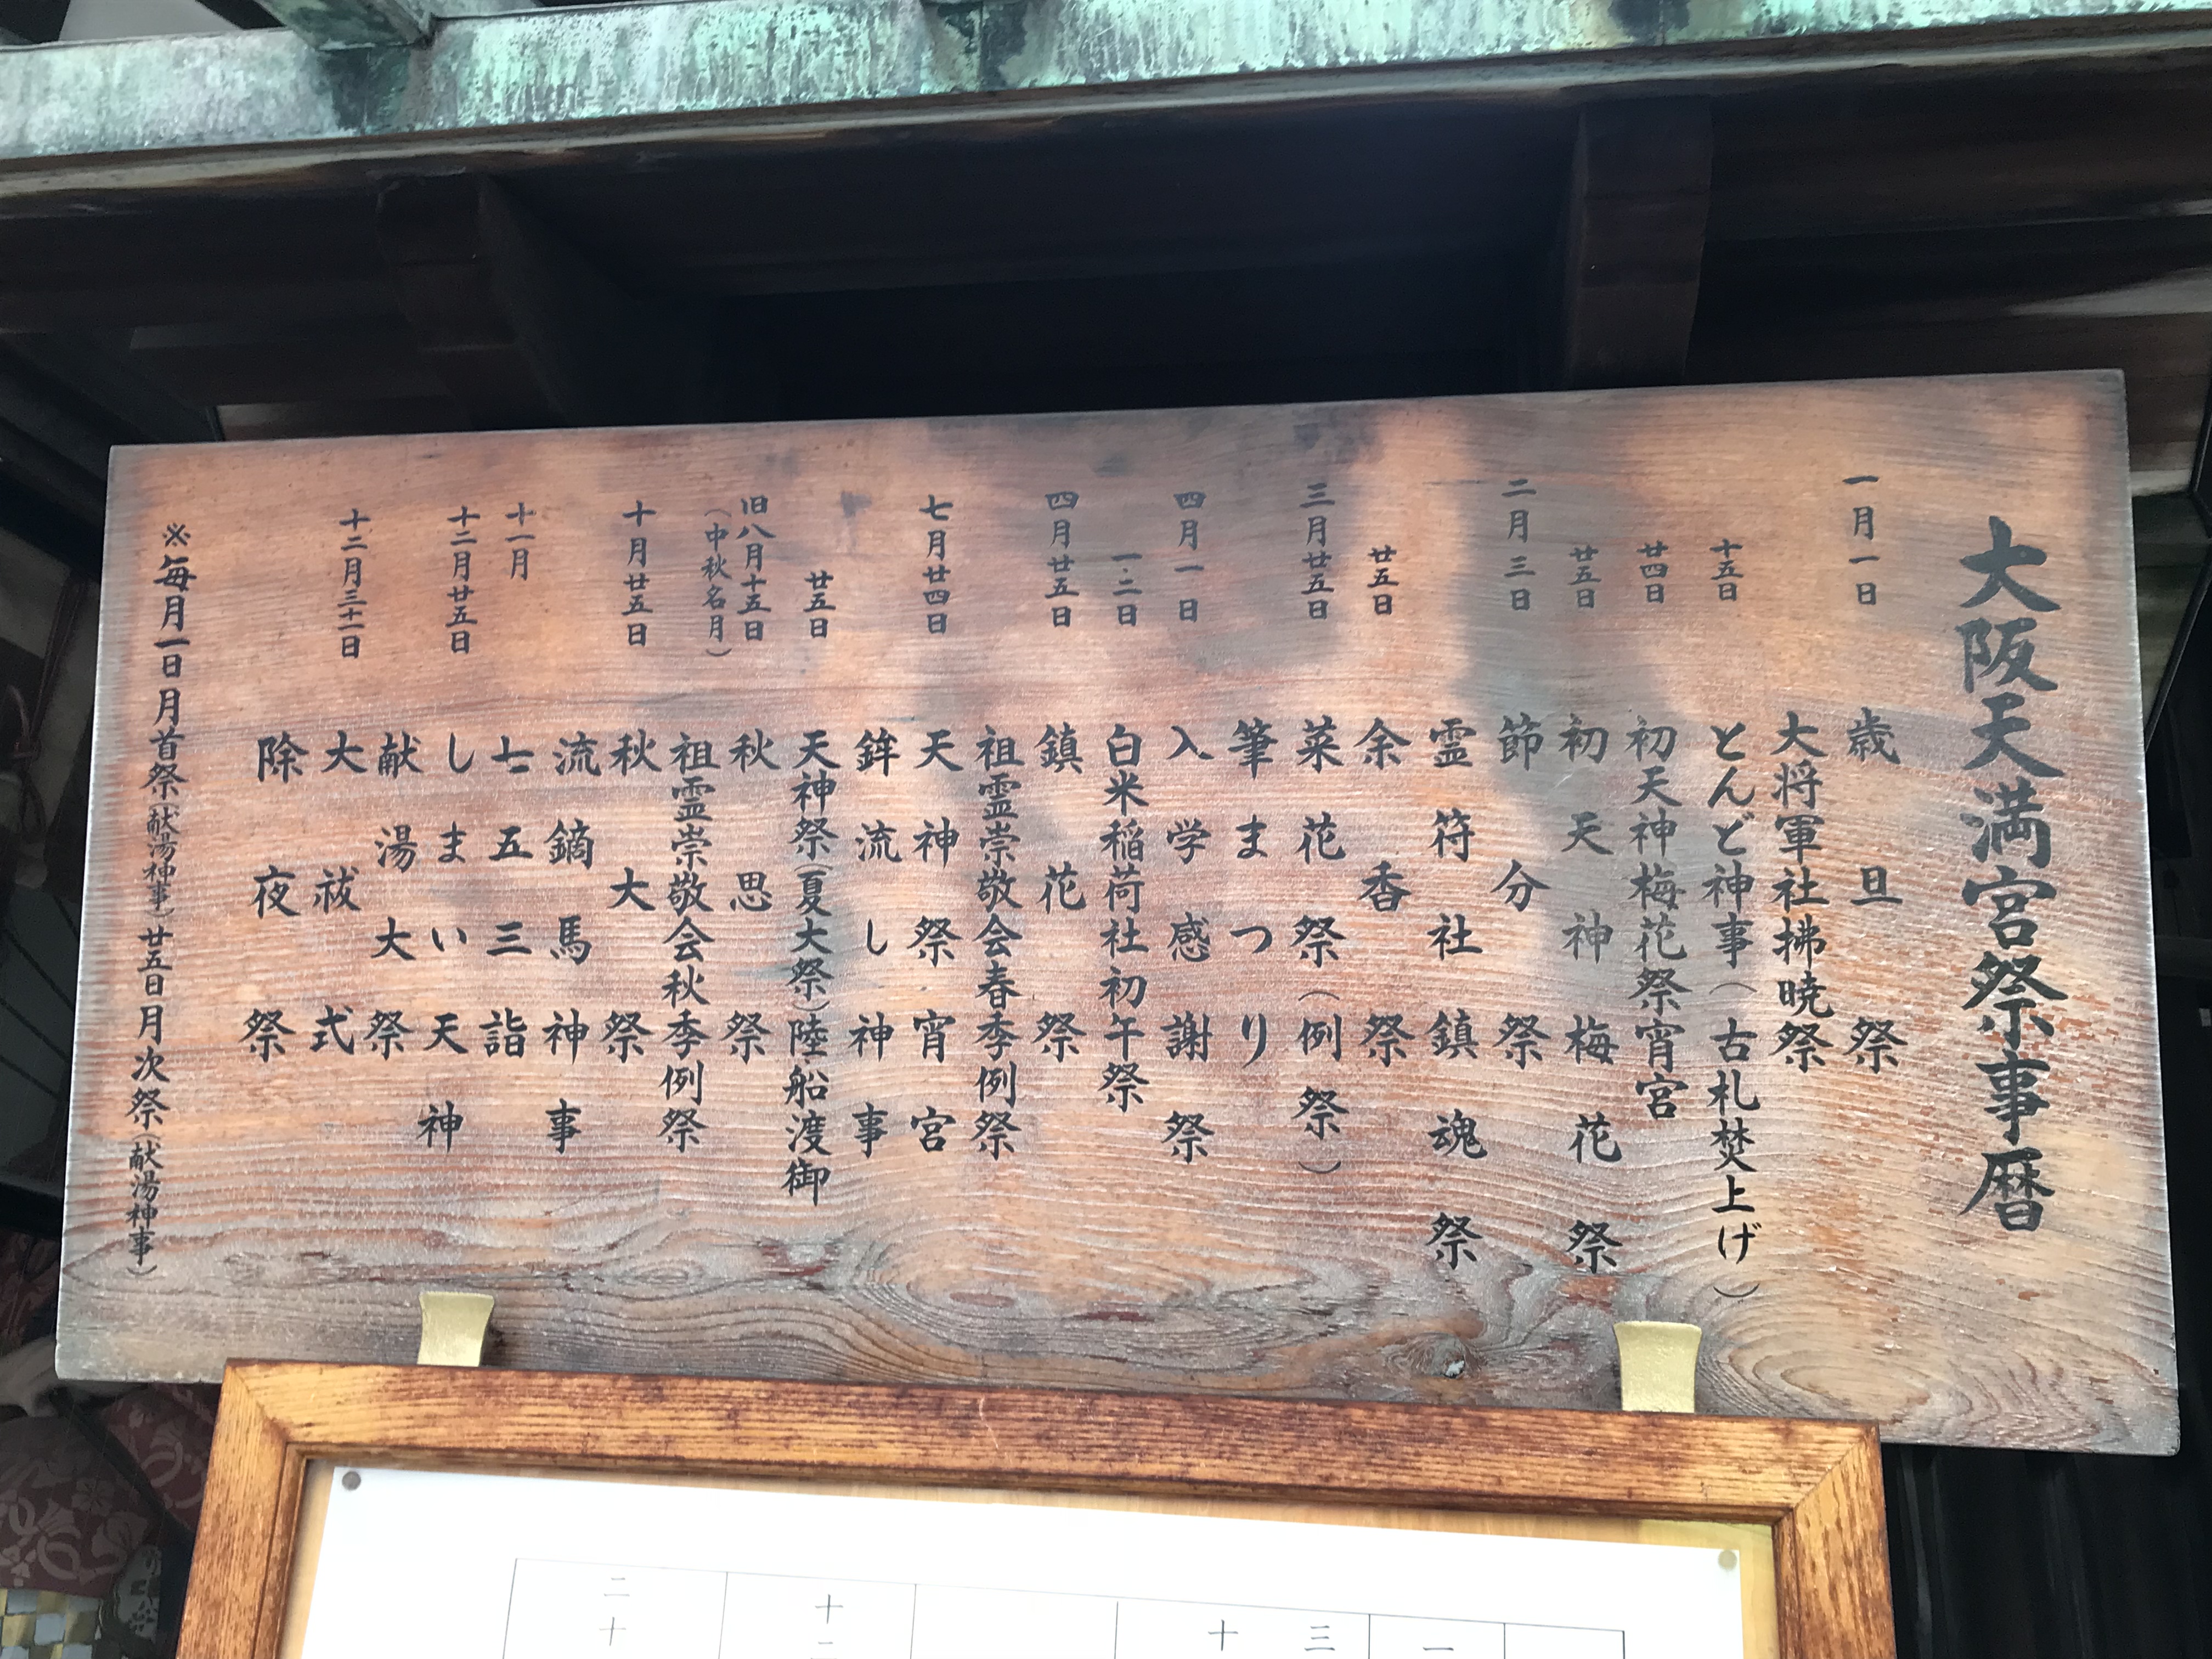 大阪天満宮祭事暦
一月一日 歳旦祭
大将軍社拂暁祭
十五日 とんど神事（古札焚上げ）
廿四日 初天神梅花祭宵宮
廿五日 初天神梅花祭
二月三日 節分祭
霊符社鎮魂祭
廿五日 余香祭
三月廿五日 菜花祭（例祭）
筆まつり
四月一日 入学感謝祭
一・二日 白米稲荷社初午祭
四月廿五日 鎮花祭
祖霊崇敬会春季例祭
七月廿四日 天神祭宵宮
鉾流し神事
廿五日 天神祭（夏大祭）陸船渡御
旧八月十五日 秋思祭
（中秋名月）
祖霊崇敬会秋季例祭
十月廿五日 秋大祭
流鏑馬神事
十一月 七五三詣
十二月廿五日 しまい天神
献湯大祭
十二月三十一日 大祓式
除夜祭
※毎月一日月首祭（献湯神事）廿五日月次祭（献湯神事）
一
三
十
十二
二十